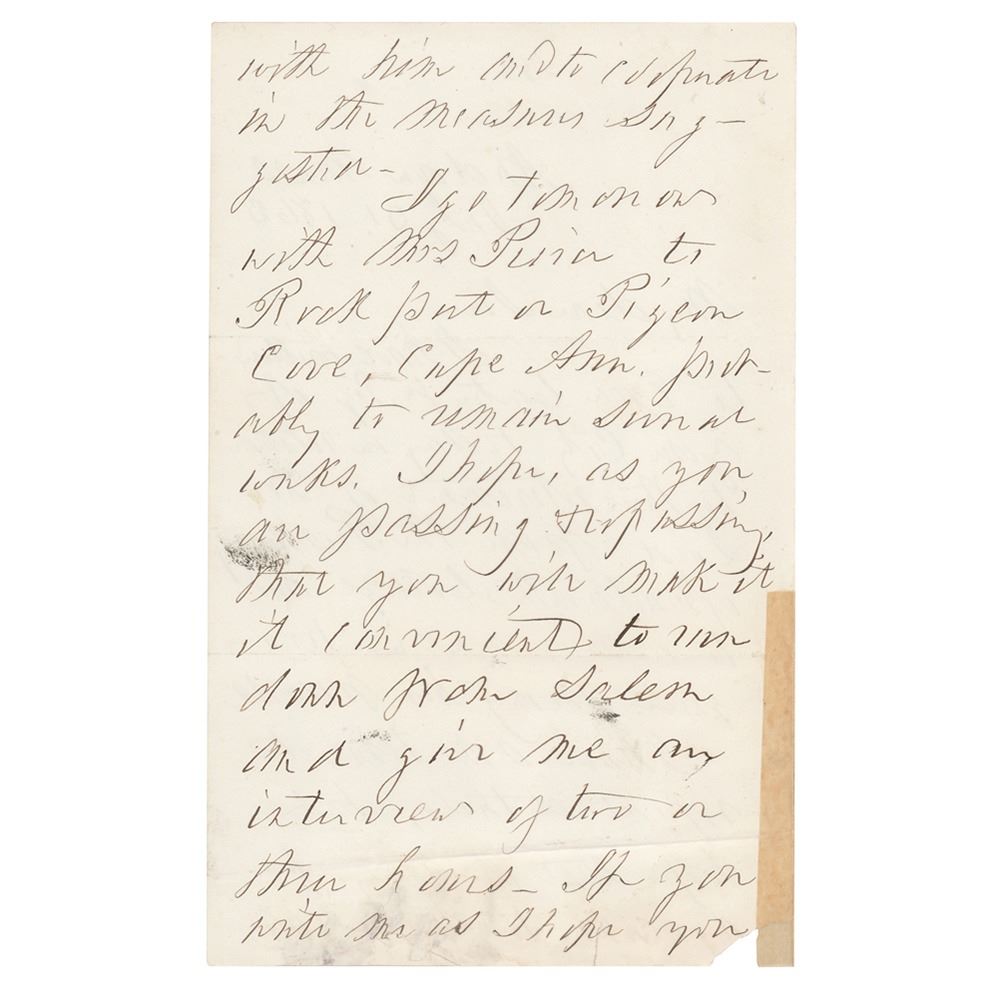 with him and to cooperate
in the measures sug-
gested -
I go tomorrow
with Mrs Pierce to
Rock port or Pigeon
Cove, Cape Ann. prob-
ably to remain several
weeks. I hope, as you
are passing & repassing,
that you will make it
it convenient to run
down from Salem
and give me an
interview of two or
three hours - If you
write me as I hope you